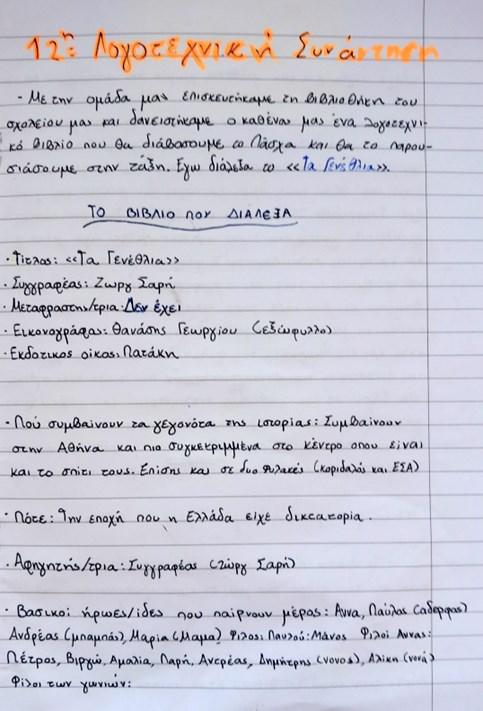 12η Λογοτεχνική Συνάντηση
- Με την ομάδα μας επισκευτήκαμε τη βιβλιοθήκη του
σχολείου μας και δανειστήκαμε ο καθένας μας ένα λογοτεχνι-
κό βιβλίο που θα διάβασουμε το Πάσχα και θα το παρου-
σιάσουμε στην τάξη. Εγω διάλεξα το «Τα Γενέθλια».
ΤΟ ΒΙΒΛΙΟ ΠΟΥ ΔΙΑΛΕΞΑ
· Τίτλος: «Τα Γενέθλια»
· Συγγραφέας: Ζωρζ Σαρή
· Μεταφραστής/τρια: Δεν έχει
· Εικονογράφος: Θανάσης Γεωργίου (εξώφυλλο)
· Εκδοτικος οίκος: Πατάκη
· Πού συμβαίνουν τα γεγονότα της ιστορίας: Συμβαίνουν
στην Αθήνα και πιο συγκεκριμμένα στο κέντρο οπου είναι
και το σπίτι τους. Επίσης και σε δυο φυλακές (κοριδαλός και ΕΣΑ)
· Πότε: Την εποχή που η Ελλάδα είχε δικτατορία.
· Αφηγητής/τρια: Συγγραφέας (Ζώρζ Σαρή)
· Βασικοί ήρωες/ιδες που παίρνουν μέρος: Αννα, Παύλος (αδερφος)
Ανδρέας (μπαμπάς), Μαρια (Μαμα) Φιλος: Παυλού: Μάνος Φιλοι Αννας:
Πέτρος, Βιργώ, Αμαλία, Παρή, Ανδρέας, Δημήτρης (νονος), Αλίκη (νονά)
Φίλοι των γωνιών: